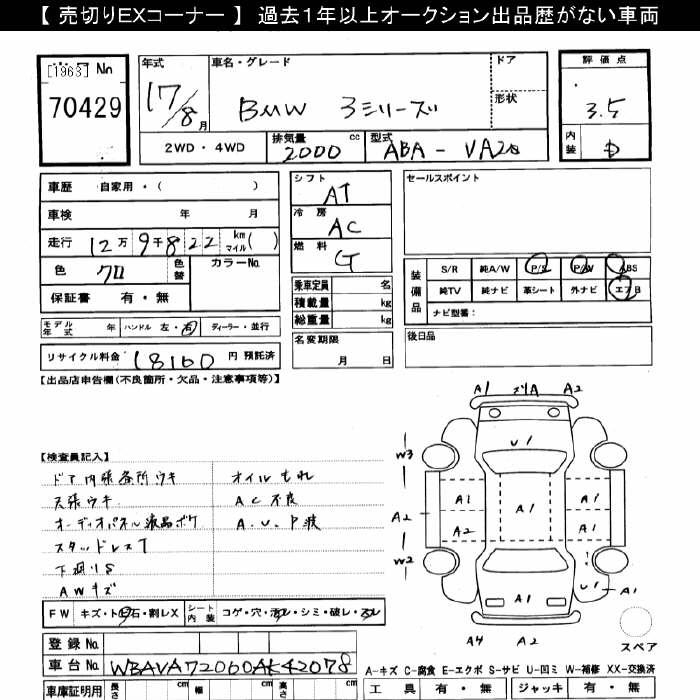 【 売切りEXコーナー 】 過去1年以上オークション出品歴がない車両
[1963] No
70429
年式
17/8月
車名・グレード
BMW 3シリーズ
ドア
形状
評価点
3.5
内装
2WD・4WD
排気量
2000 cc
型式
ABA - VA20
車歴 自家用・( )
車検 年 月
走行 12万9千822 km マイル( )
色 クロ 色替
カラーNo.
保証書 有・無
モデル年式 年 ハンドル 左・右 ディーラー・並行
リサイクル料金 18160 円 預託済
シフト AT
冷房 AC
燃料 G
乗車定員 名
積載量 kg
総重量 kg
名変期限
月 日
セールスポイント
装備品
S/R 純A/W P/S P/W ABS
純TV 純ナビ 革シート 外ナビ エアB
ナビ型番:
後日品
【出品店申告欄(不良箇所・欠品・注意事項等)】
【検査員記入】
ドア内張各所ウキ
天張ウキ
オーディオパネル液晶ボケ
スタッドレスT
下廻りS
AWキズ
オイルもれ
AC不良
A.U.P波
A1 スリA A2
W3
U1
A1
A1
A1
A2
A2
A1
W2
U1
A1
A1
A4 A2
スペア
FW キズ・トビ石・割レX
シート内装 コゲ・穴・汚レ・シミ・破レ・スレ
登録 No.
車台 No. WBAVA72060AK42078
A-キズ C-腐食 E-エクボ S-サビ U-凹ミ W-補修 XX-交換済
車庫証明用 長さ cm 幅 cm 高さ cm
工具 有・無 ジャッキ 有・無